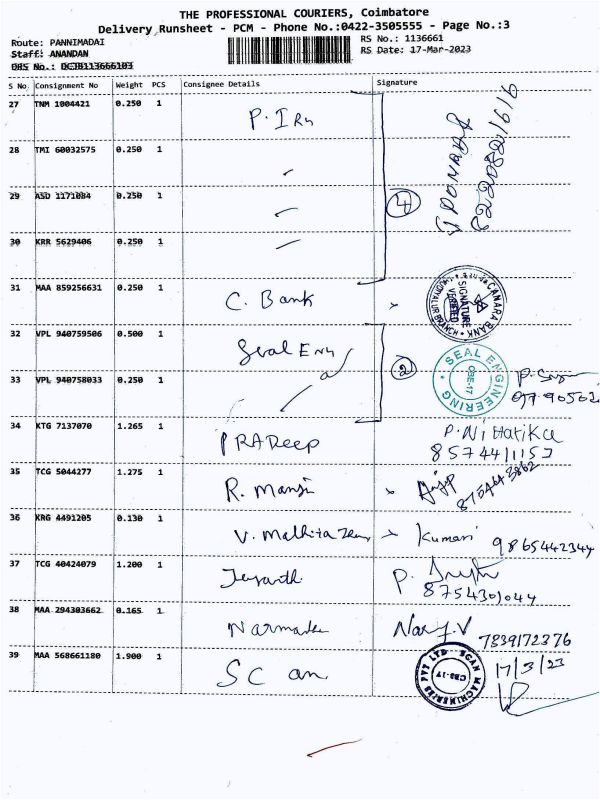 THE PROFESSIONAL COURIERS, Coimbatore
Delivery Runsheet - PCM - Phone No.:0422-3505555 - Page No.:3
Route: PANNIMADAI
RS No.: 1136661
Staff: ANANDAN
RS Date: 17-Mar-2023
DRS No.: DCJB113666103
S No. Consignment No Weight PCS Consignee Details Signature
27 TNM 1004421 0.250 1 P. Iru
28 TMI 60032575 0.250 1
29 ASD 1171084 0.250 1
4
30 KRR 5629406 0.250 1
31 MAA 859256631 0.250 1 C. Bank
CANARA BANK
SIGNATURE VERIFIED
32 VPL 940759506 0.500 1 Seal Eng
2
SEAL ENGINEERING
CBE-17
33 VPL 940758033 0.250 1
34 KTG 7137070 1.265 1 PRADeep P. Nitharika
8574411157
35 TCG 5044277 1.275 1 R. Manji
36 KRG 4491205 0.130 1 V. Kumari 9865442344
37 TCG 40424079 1.200 1 Jayanth P.
8754301044
38 MAA 294303662 0.165 1 Narmada
7839172376
39 MAA 568661180 1.900 1 SCan
SCAN MACHINERIES PVT LTD
CBE-17
17/3/23